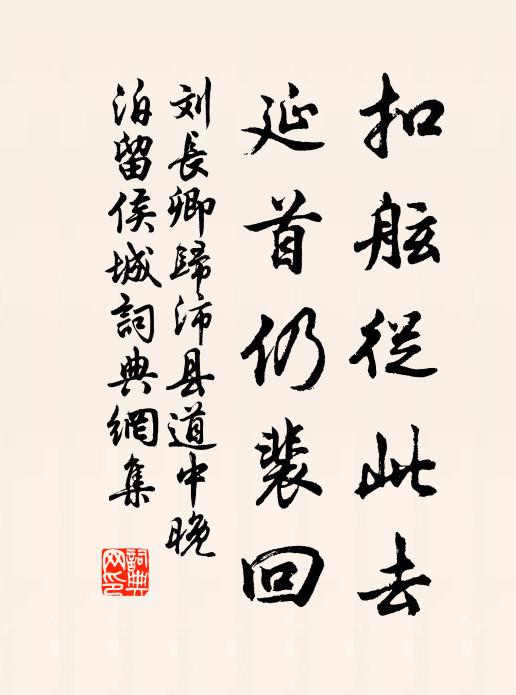 扣舷從此去
延首仍裴回
刘長卿歸沛县道中晚
泊留侯城詞典網集
詞典网印